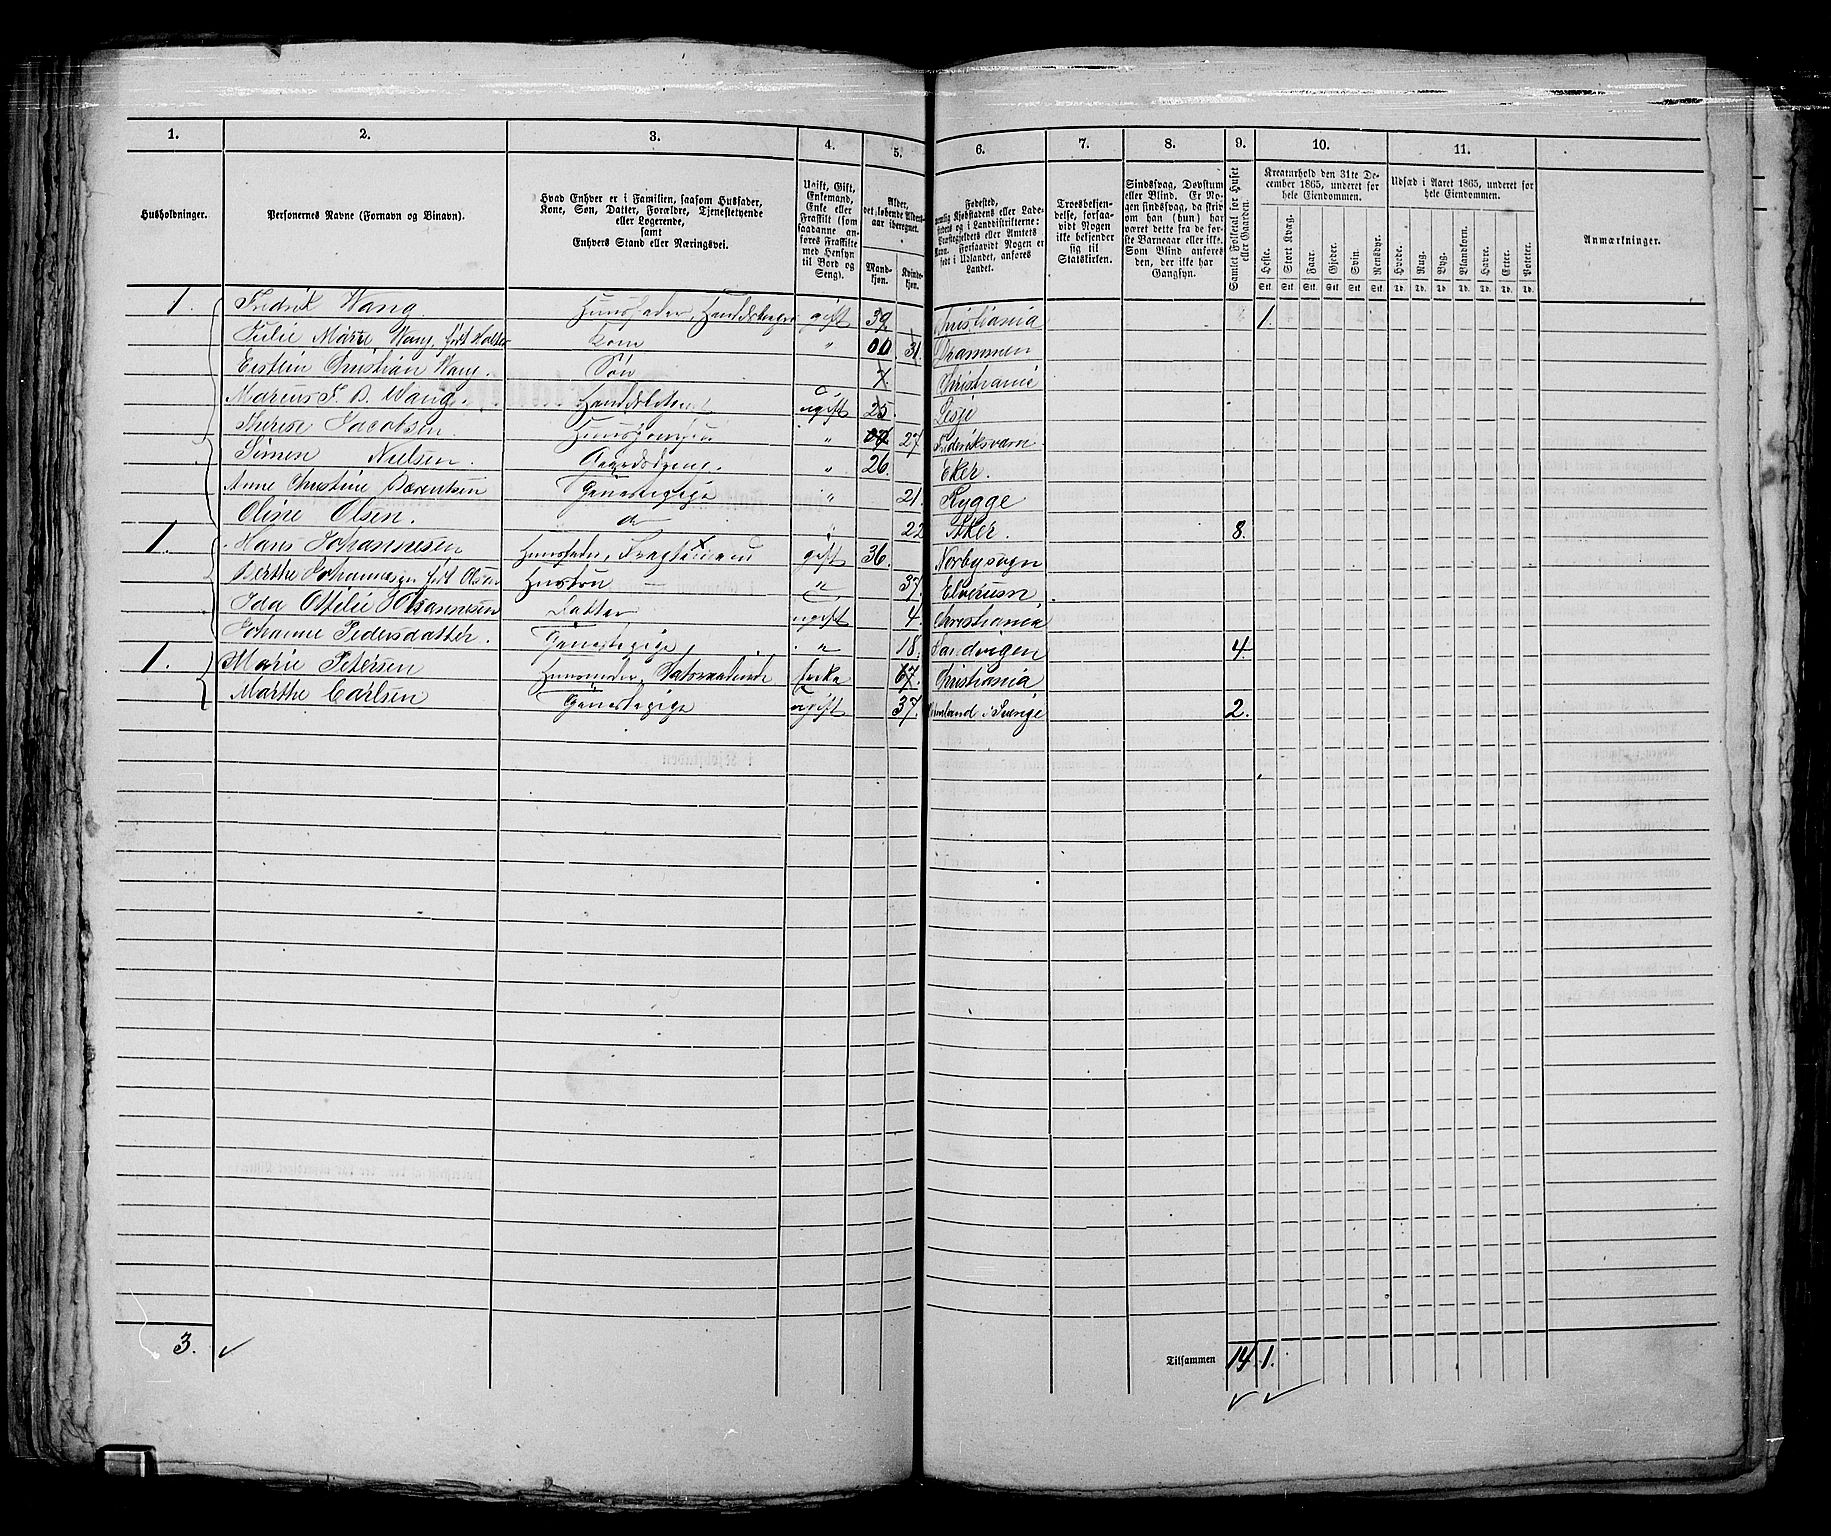 1. 2. 3. 4. 5. 6. 7. 8. 9. 10. 11.
Husholdninger. Personernes Navne (Fornavn og Binavn). Hvad Enhver er i Familien, saasom Husfader, Kone, Søn, Datter, Forældre, Tjenestetyende eller Logerende, samt Enhvers Stand eller Næringsvei. Ugift, Gift, Enkemand, Enke eller Fraskilt (som saadanne anføres Fraskilte med Hensyn til Bord og Seng). Alder, det løbende Aldersaar iberegnet. Mandkjøn. Kvindekjøn. Fødested, nemlig Kjøbstadens eller Ladestedets og i Landdistrikterne: Præstegjeldets eller Amtets Navn. Forsaavidt Nogen er født i Udlandet, anføres Landet. Troesbekjendelse, forsaavidt Nogen ikke bekjender sig til Statskirken. Sindssvag, Døvstum eller Blind. Er Nogen sindssvag, da skrives om han (hun) har været dette fra de første Barneaar eller ikke. Som Blind anføres den, der ikke har Gangsyn. Samlet Folketal for Huset eller Gaarden. Kreaturhold den 31te December 1865, underet for hele Eiendommen. Udsæd i Aaret 1865, underet for hele Eiendommen. Anmærkninger.
Heste. Stort Kvæg. Faar. Gjeder. Svin. Rensdyr. Hvede. Rug. Byg. Blandkorn. Havre. Erter. Poteter.
Stk. Stk. Stk. Stk. Stk. Stk. Td. Td. Td. Td. Td. Td. Td.
1. Fredrik Wang. Huusfader, gift 39 Christiania 1.
Julie Marie Wang født Kone " 31. Drammen
Eistein Christian Wang. Søn 7 Christiania
Marius F. B. Wang. ugift 25. Lesje
Therese Jacobsen. " 27 Frederiksværn
Simen Nielsen. Gaardsdreng. " 26 Eker.
Anne Christine Berentsen Tjenestepige " 21. Rygge
Oline Olsen. do " 22 Aker. 8.
1. Hans Johannesen Huusfader, gift 36. Norbysogn
Berthe Johannesen født Olsen Hustru " 37. Elverum
Ida Ottilie Johannesen Datter ugift 4. Christiania
Johanne Pedersdatter. Tjenestepige, " 18. Sandvigen 4.
1. Marie Petersen Enke 67. Christiania
Marthe Carlsen Tjenestepige ugift 37. i Sverige 2.
3. Tilsammen 14. 1.